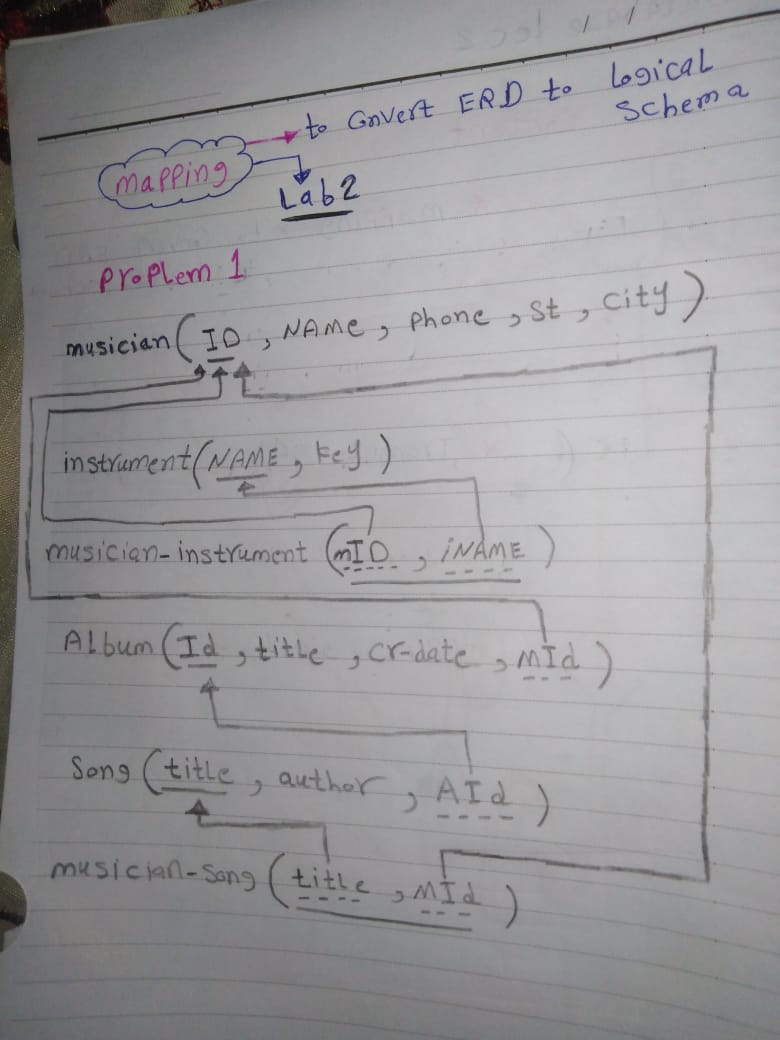 / /
to Convert ERD to Logical
Schema
mapping
Lab2
Proplem 1
musician ( ID , NAMe , Phone , St , City )
instrument ( NAME , key )
musician-instrument ( mID , iNAME )
Album ( Id , title , cr-date , mId )
Song ( title , author , AId )
musician-Song ( title , MId )